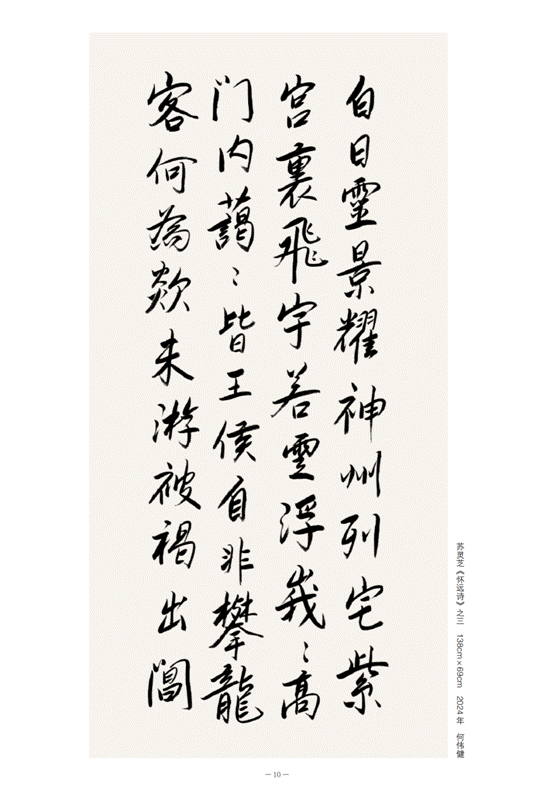 白日靈景耀神州列宅紫
宫裏飛宇若雲浮峩〻高
门内藹〻皆王侯自非攀龍
客何為欻来游被褐出閶
苏灵芝《怀远诗》之三 138cm×69cm 2024年 何伟健
－10－